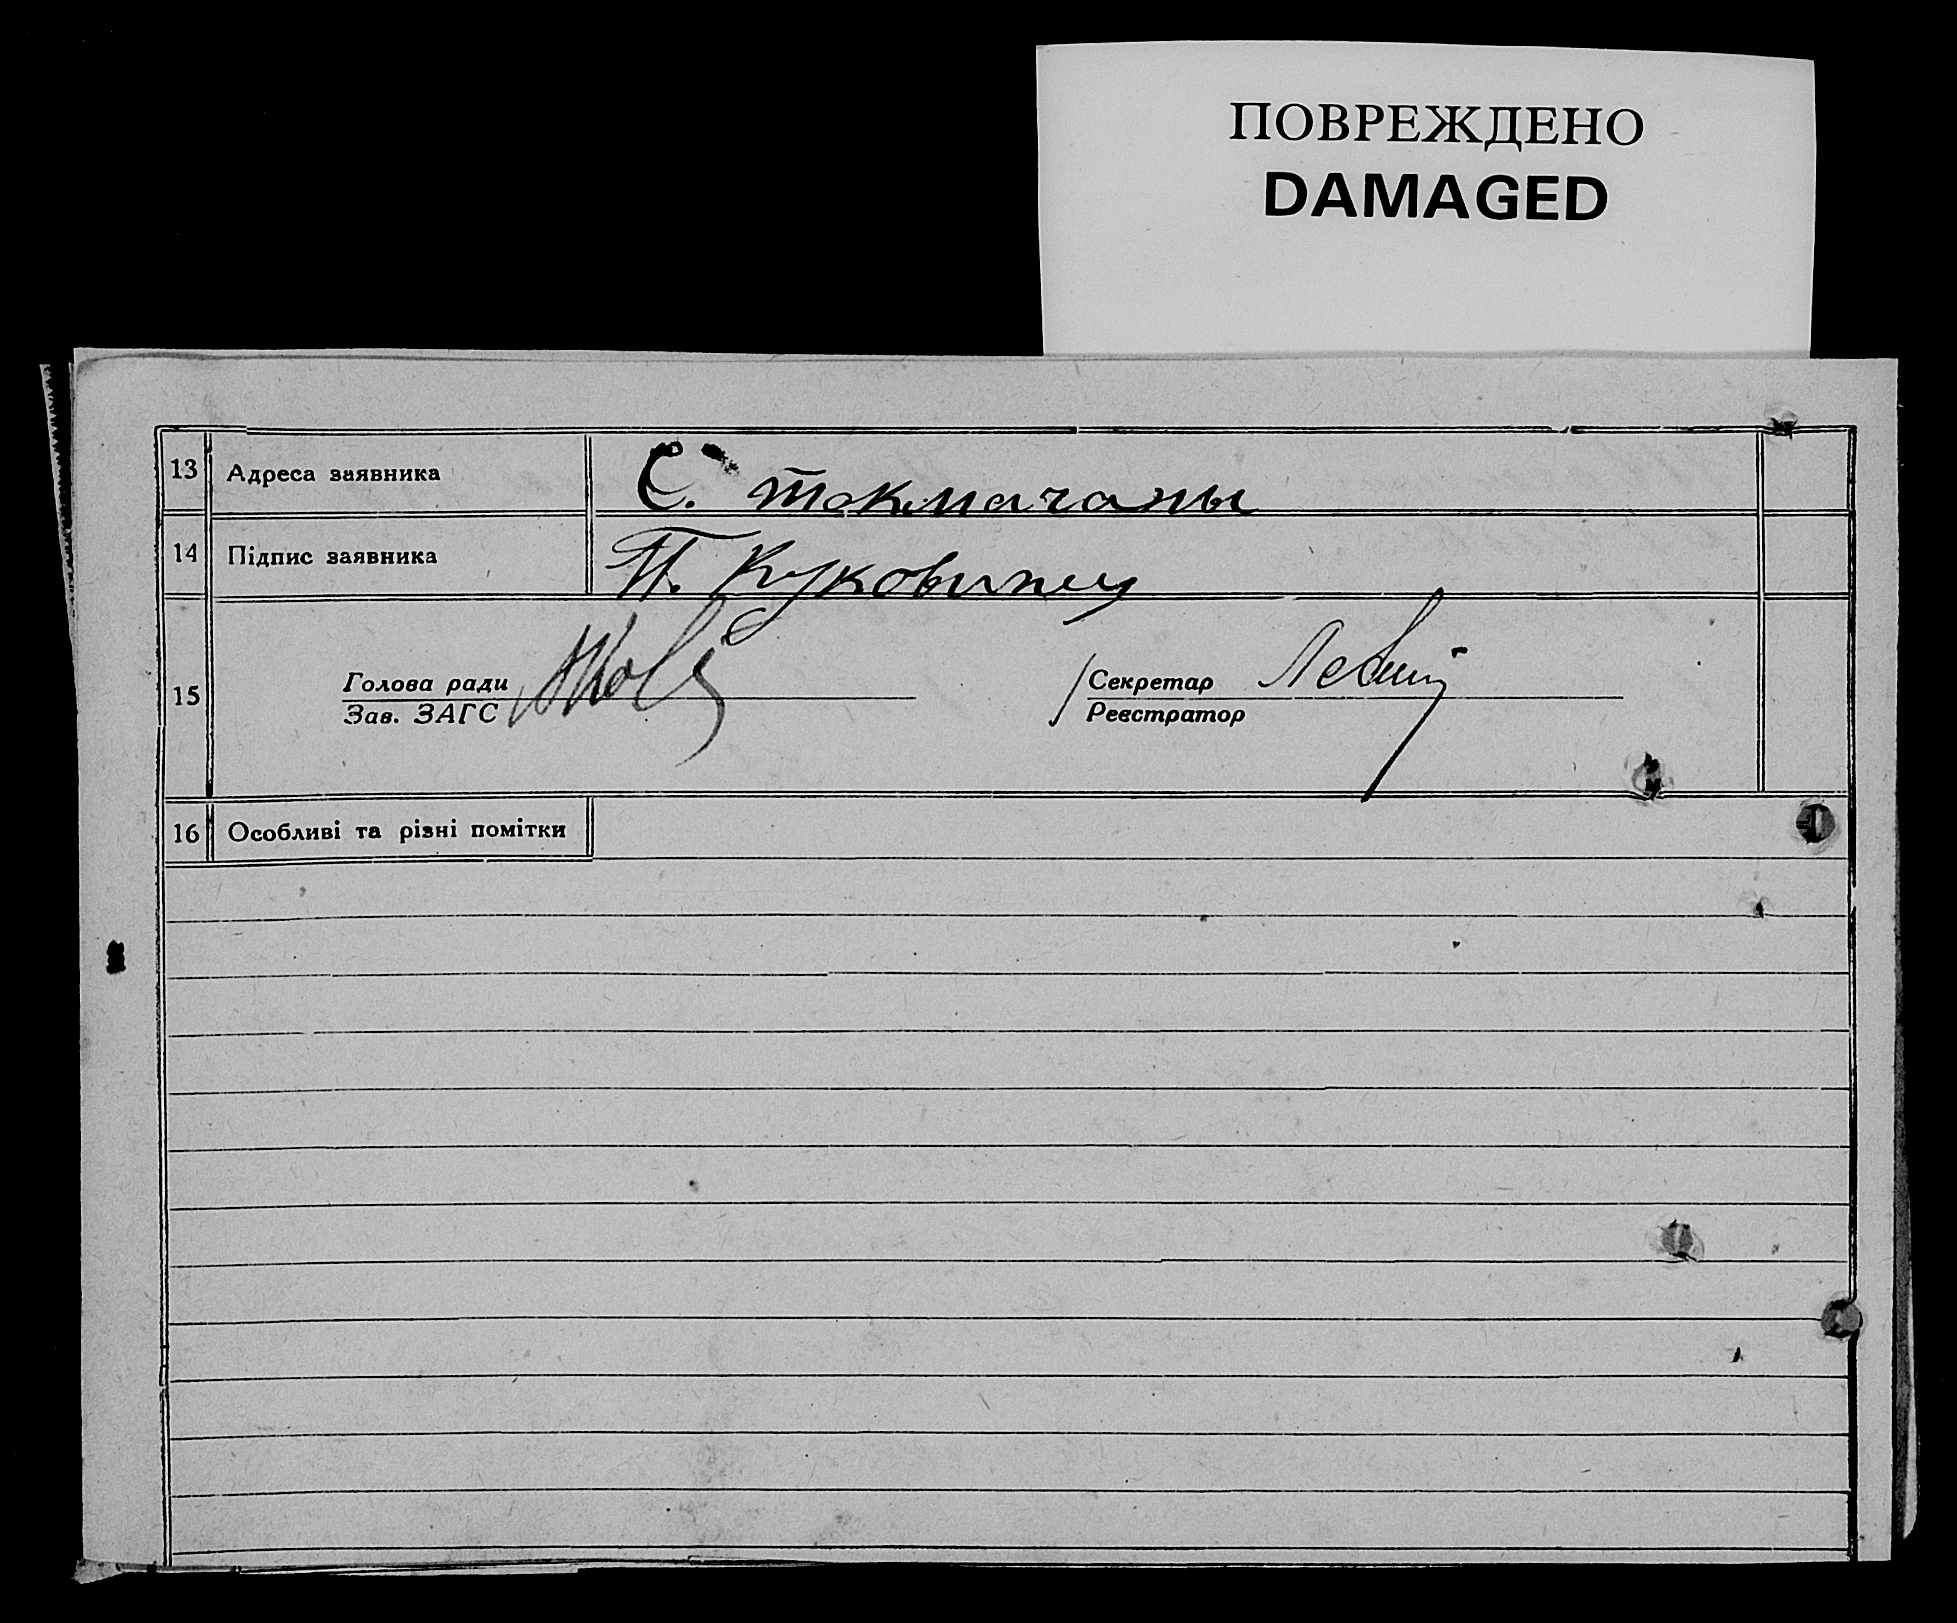 ПОВРЕЖДЕНО
DAMAGED
13 Адреса заявника С. токмачаны
14 Підпис заявника П. Куковинец
15
Голова ради
Зав. ЗАГС
Секретар
Реєстратор
16 Особливі та різні помітки